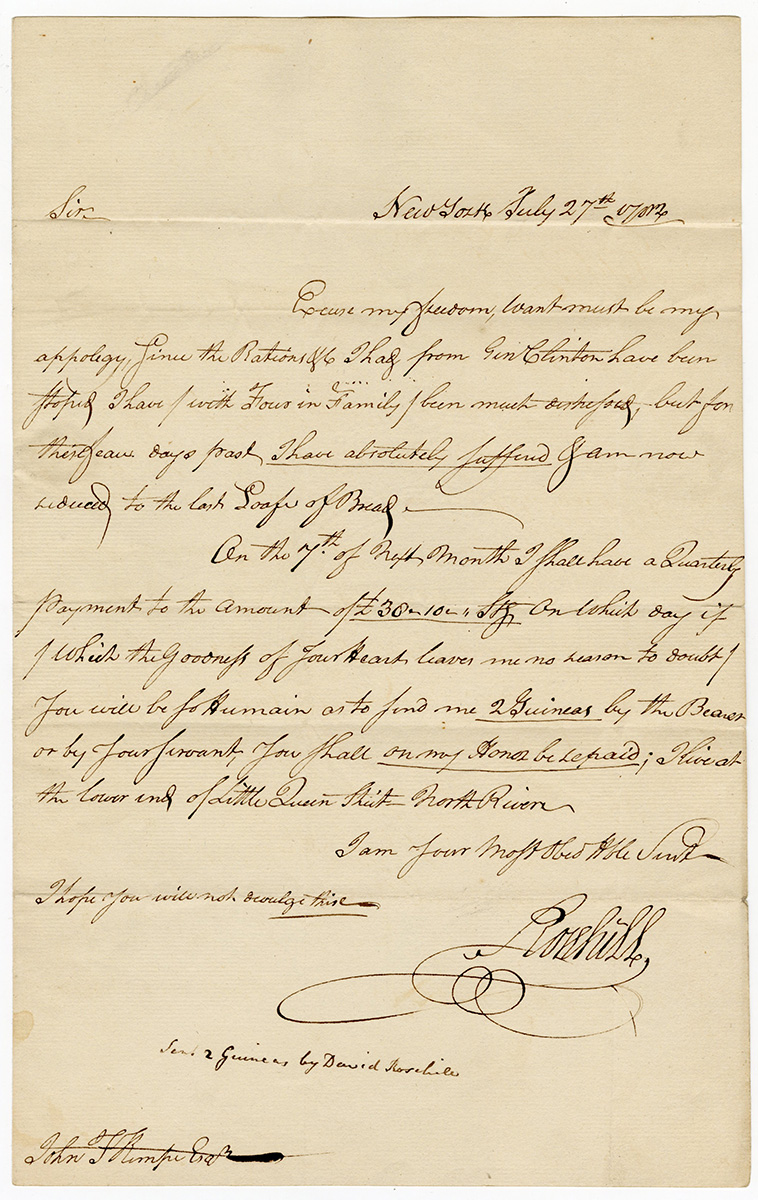 Sir New York July 27th 1782
Excuse my freedom, Want must be my
appology, Since the Rations &c I had from Gen Clinton have been
stoped I have / with Four in Family / been much distressed, but for
these feaw days past I have absolutely suffered & am now
reduced to the last Loafe of Bread.
On the 7th of Next Month I shall have a Quarterly
payment to the amount of £38 " 10 " " Stg. On Which day if
/ Which the Goodness of Your Heart leaves me no reason to doubt /
You will be so Humain as to send me 2 Guineas by the Bearer
or by Your Servant, You shall on my Honor be repaid; I live at
the lower end of Little Queen Street North River
I am Your Most Obed Hble Servt
I hope You will not devulge this
Rosehill
Sent 2 Guineas by David Rosehill
John T Kempe Esqr